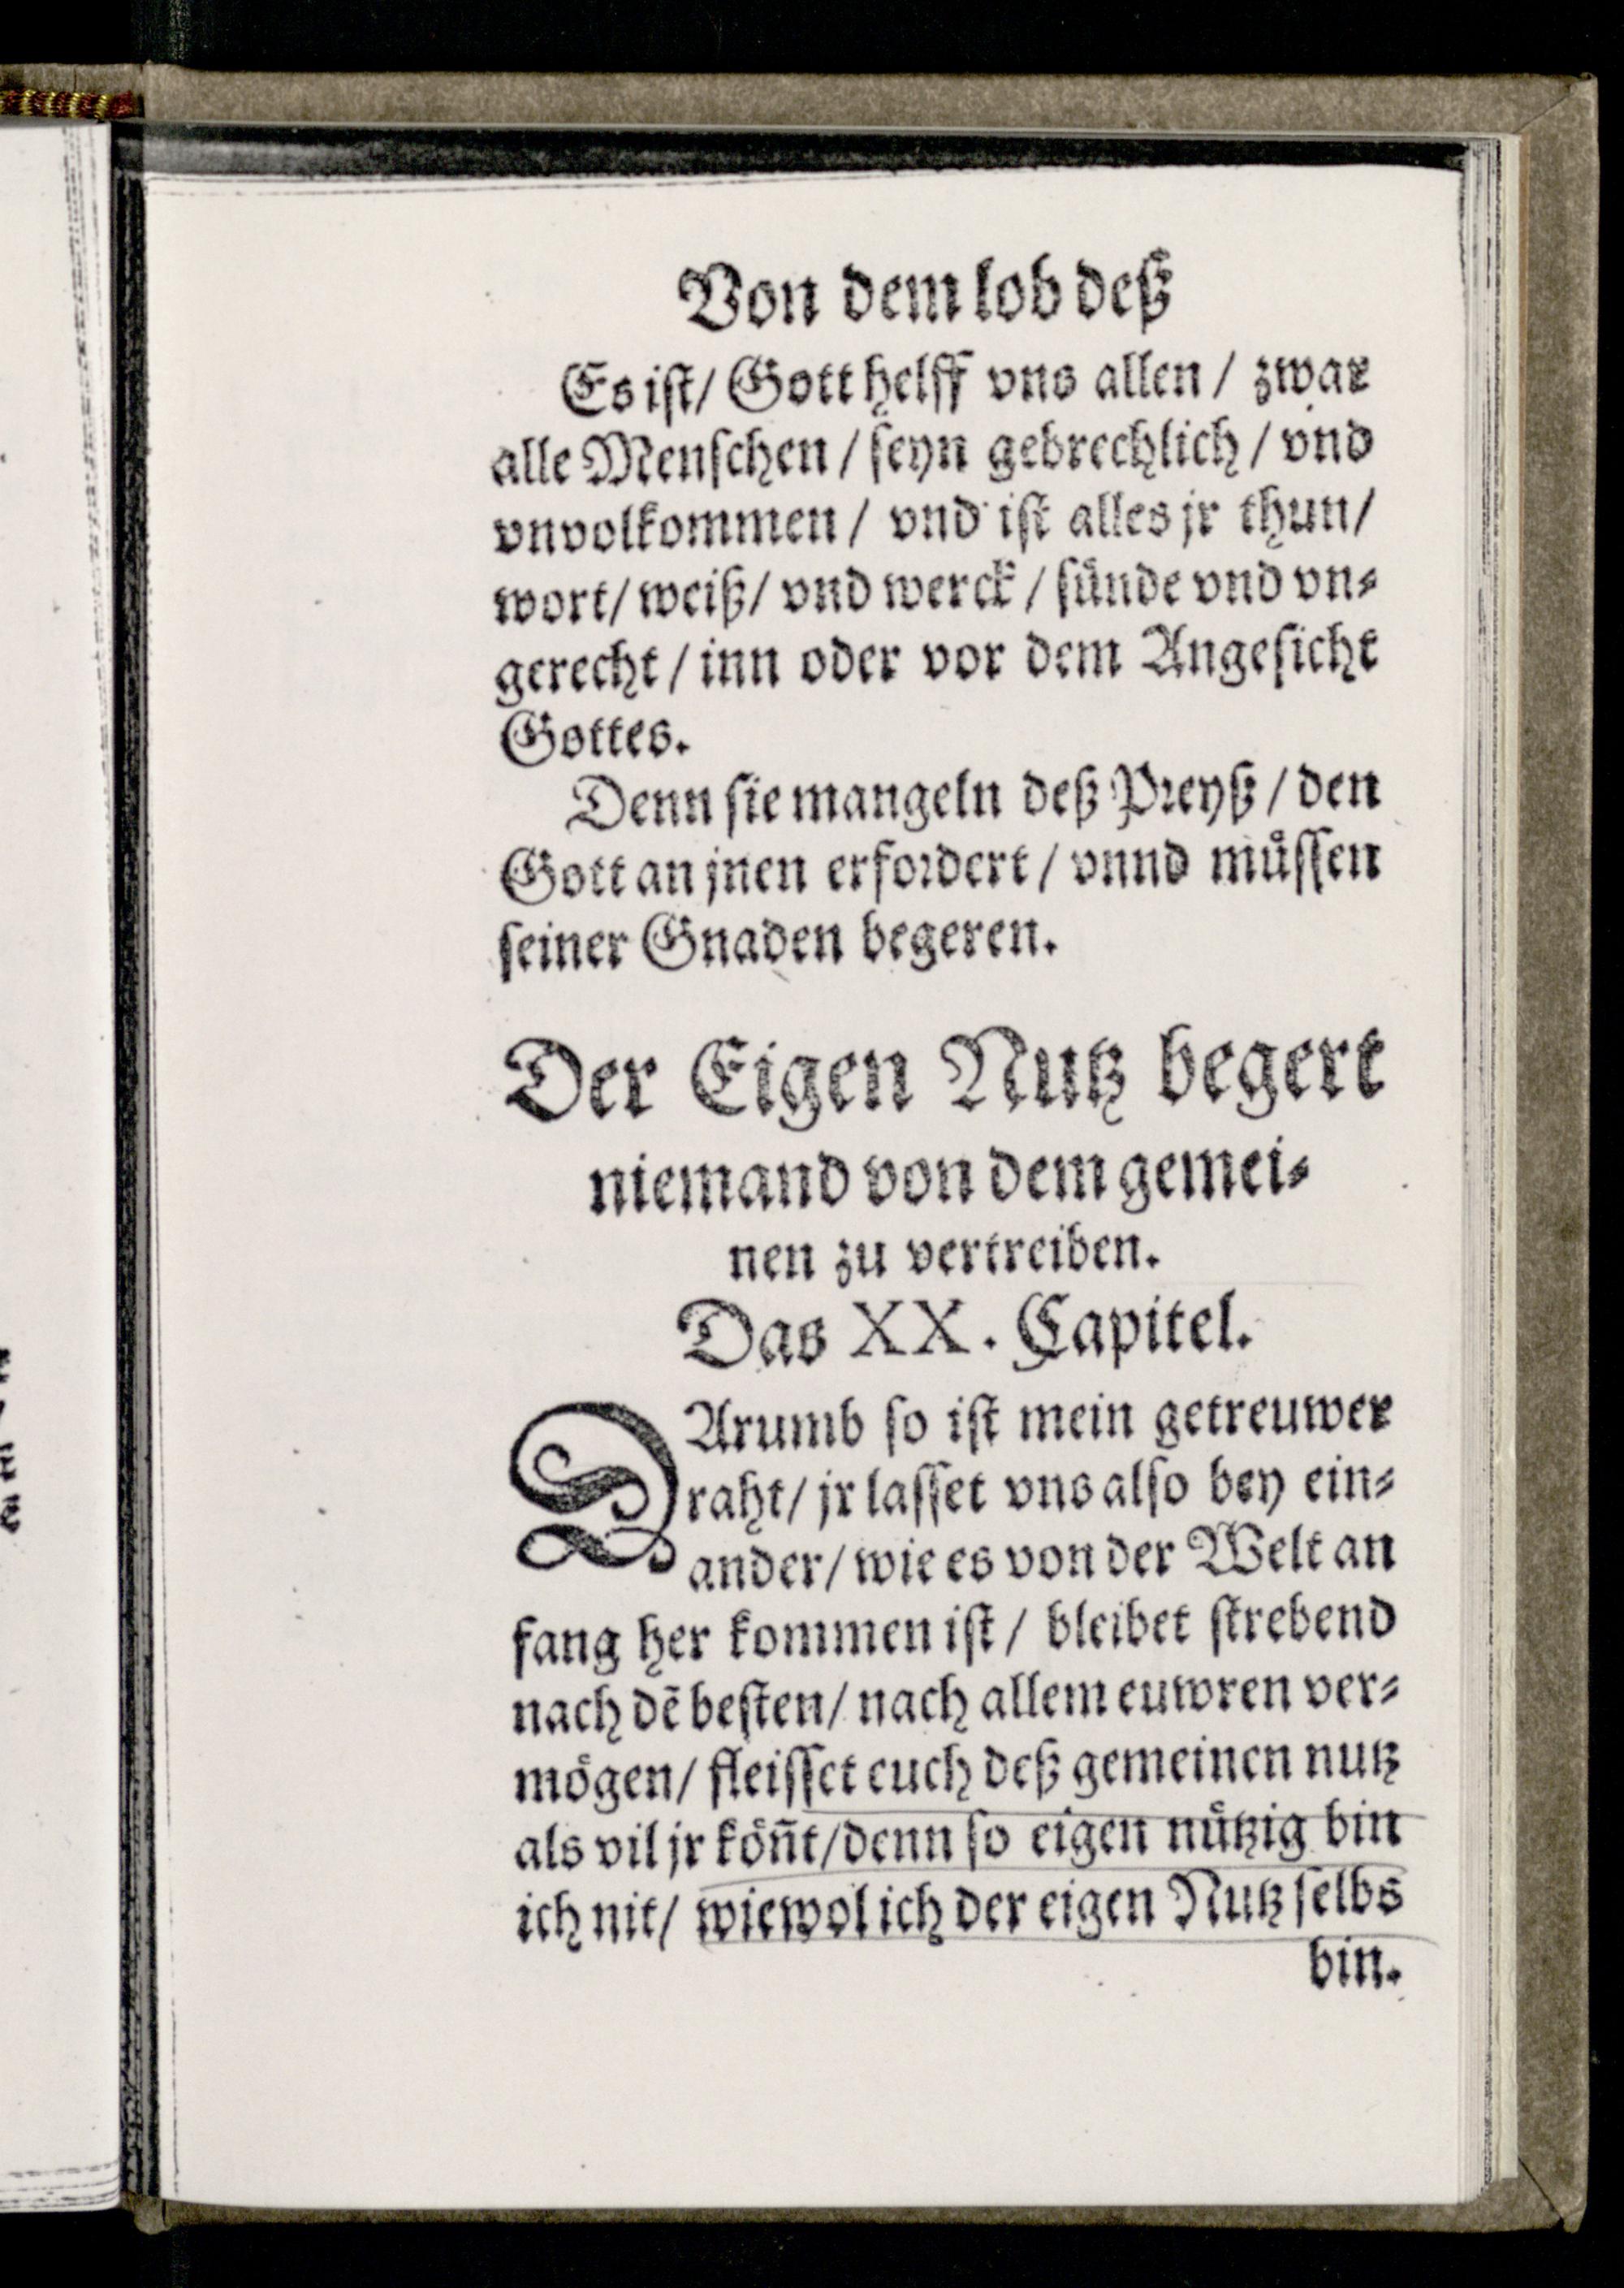 Von dem lob deß
Es iſt/ Gott helff vns allen / zwar
alle Menſchen / ſeyn gebrechlich / vnd
vnvolkommen / vnd iſt alles jr thun/
wort/ weiß/ vnd werck / ſuͤnde vnd vn⸗
gerecht / inn oder vor dem Angeſicht
Gottes.
Denn ſie mangeln deß Preyß / den
Gott an jnen erfordert / vnnd muͤſſen
ſeiner Gnaden begeren.
Der Eigen Nutz begert
niemand von dem gemei⸗
nen zu vertreiben.
Das XX. Capitel.
DArumb ſo iſt mein getreuwer
raht/ jr laſſet vns alſo bey ein⸗
ander/ wie es von der Welt an
fang her kommen iſt / bleibet ſtrebend
nach dē beſten/ nach allem euwren ver⸗
moͤgen/ fleiſſet euch deß gemeinen nutz
als vil jr koͤn̄t/denn ſo eigen nuͤtzig bin
ich nit/ wiewol ich der eigen Nutz ſelbs
bin.